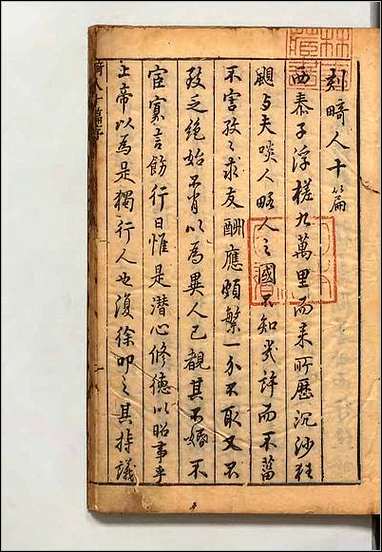 刻畸人十篇
西泰子浮槎九萬里而来所歷沉沙狂
颶与夫啖人略人之國不知幾許而不菑
不害孜孜求友酬應頗繁一介不取又不
致乏絕始不肖以為異人已覩其不婚不
宦寡言飭行日惟是潜心修德以昭事乎
上帝以為是獨行人也復徐叩之其持議
畸人十篇序